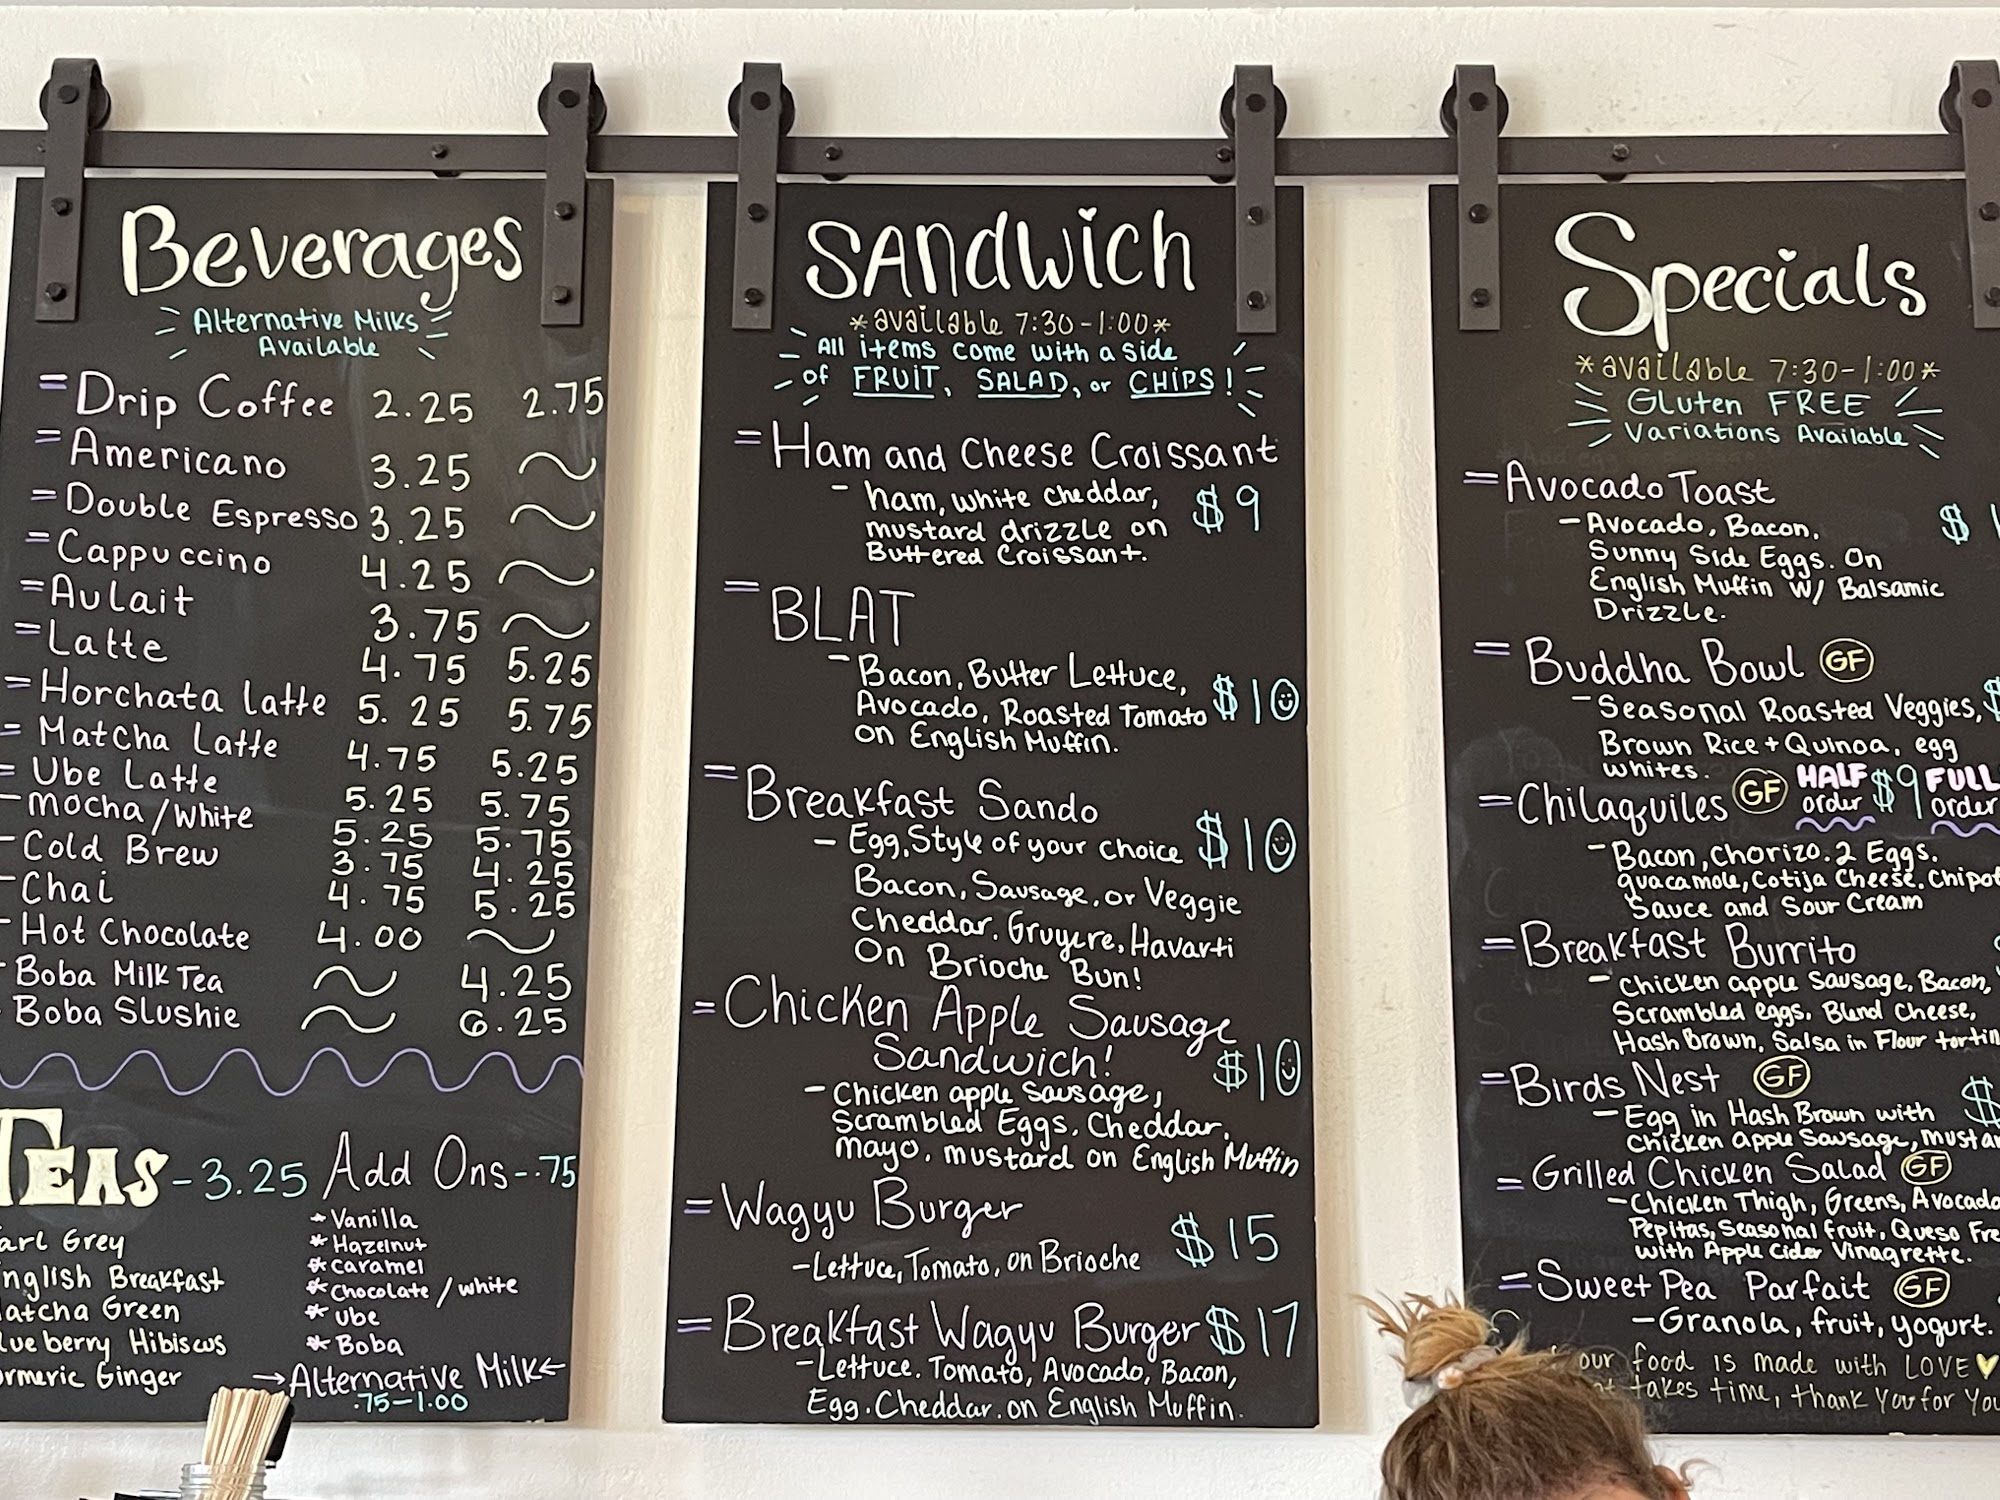 Beverages
Alternative Milks
Available
= Drip Coffee 2.25 2.75
= Americano 3.25 ~
= Double Espresso 3.25 ~
= Cappuccino 4.25 ~
= Au Lait 3.75 ~
= Latte 4.75 5.25
= Horchata latte 5.25 5.75
= Matcha Latte 4.75 5.25
= Ube Latte 5.25 5.75
- mocha/white 5.25 5.75
- Cold Brew 3.75 4.25
- Chai 4.75 5.25
- Hot Chocolate 4.00 ~
- Boba Milk Tea ~ 4.25
- Boba Slushie ~ 6.25
TEAS - 3.25
arl Grey
nglish Breakfast
atcha Green
lueberry Hibiscus
urmeric Ginger
Add Ons - .75
* Vanilla
* Hazelnut
* caramel
* Chocolate / white
* ube
* Boba
→ Alternative Milk ←
.75-1.00
SANDWICH
*available 7:30-1:00*
All items come with a side
of FRUIT, SALAD, or CHIPS!
= Ham and Cheese Croissant
- ham, white cheddar, $9
mustard drizzle on
Buttered Croissant.
= BLAT
- Bacon, Butter Lettuce,
Avocado, Roasted Tomato $10
on English Muffin.
= Breakfast Sando
- Egg, Style of your choice $10
Bacon, Sausage, or Veggie
Cheddar, Gruyere, Havarti
On Brioche Bun!
= Chicken Apple Sausage
Sandwich! $10
- Chicken apple sausage,
Scrambled Eggs, Cheddar,
mayo, mustard on English Muffin
= Wagyu Burger
- Lettuce, Tomato, on Brioche $15
= Breakfast Wagyu Burger $17
- Lettuce, Tomato, Avocado, Bacon,
Egg, Cheddar, on English Muffin.
Specials
*available 7:30-1:00*
Gluten FREE
Variations Available
= Avocado Toast
- Avocado, Bacon, $1
Sunny Side Eggs. On
English Muffin w/ Balsamic
Drizzle.
= Buddha Bowl GF
- Seasonal Roasted Veggies, $
Brown Rice + Quinoa, egg
whites.
= Chilaquiles GF HALF order $9 FULL order
- Bacon, chorizo, 2 Eggs.
guacamole, Cotija Cheese, Chipot
Sauce and Sour Cream
= Breakfast Burrito
- Chicken apple Sausage, Bacon,
Scrambled eggs, Blend Cheese,
Hash Brown, Salsa in Flour tortill
= Birds Nest GF
- Egg in Hash Brown with $
Chicken Apple Sausage, mustar
= Grilled Chicken Salad GF
- Chicken Thigh, Greens, Avocado
Pepitas, Seasonal fruit, Queso Fre
with Apple Cider Vinagrette.
= Sweet Pea Parfait GF
- Granola, fruit, yogurt.
our food is made with LOVE
takes time, thank you for you